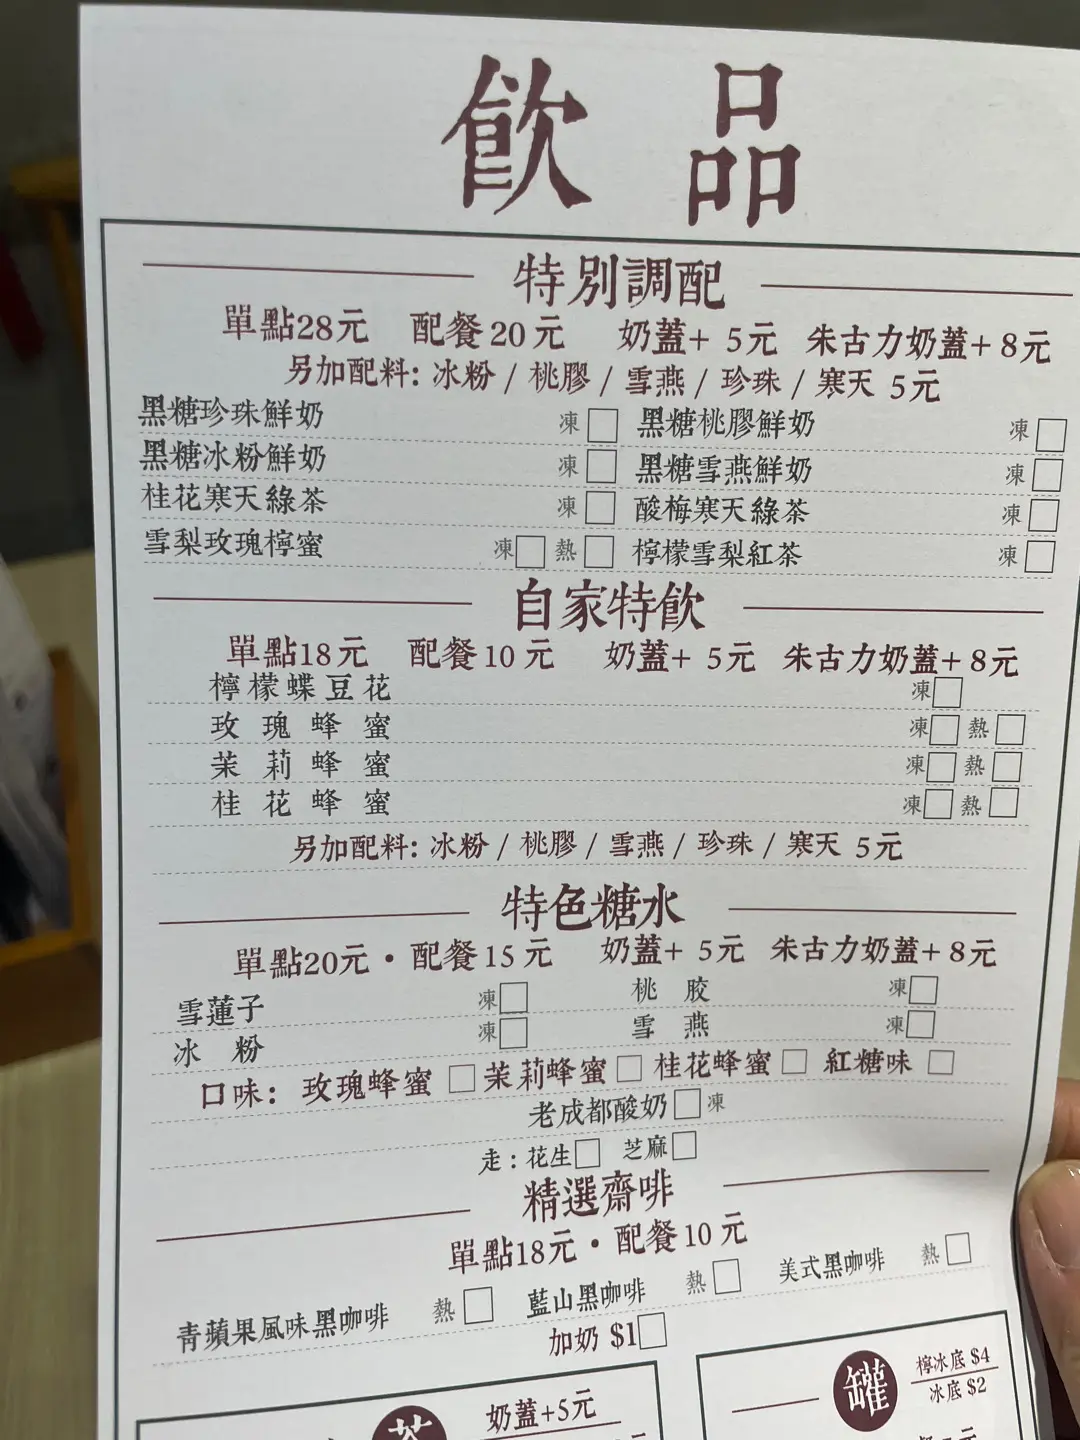 飲品
特別調配
單點28元 配餐20元 奶蓋+ 5元 朱古力奶蓋+8元
另加配料: 冰粉 / 桃膠 / 雪燕 / 珍珠 / 寒天 5元
黑糖珍珠鮮奶 凍□ 黑糖桃膠鮮奶 凍□
黑糖冰粉鮮奶 凍□ 黑糖雪燕鮮奶 凍□
桂花寒天綠茶 凍□ 酸梅寒天綠茶 凍□
雪梨玫瑰檸蜜 凍□ 熱□ 檸檬雪梨紅茶 凍□
自家特飲
單點18元 配餐10元 奶蓋+ 5元 朱古力奶蓋+8元
檸檬蝶豆花 凍□
玫瑰蜂蜜 凍□ 熱□
茉莉蜂蜜 凍□ 熱□
桂花蜂蜜 凍□ 熱□
另加配料: 冰粉 / 桃膠 / 雪燕 / 珍珠 / 寒天 5元
特色糖水
單點20元・配餐15元 奶蓋+ 5元 朱古力奶蓋+8元
雪蓮子 凍□ 桃胶 凍□
冰粉 凍□ 雪燕 凍□
口味: 玫瑰蜂蜜□ 茉莉蜂蜜□ 桂花蜂蜜□ 紅糖味□
老成都酸奶□凍
走: 花生□ 芝麻□
精選齋啡
單點18元・配餐10元
青蘋果風味黑咖啡 熱□ 藍山黑咖啡 熱□ 美式黑咖啡 熱□
加奶 $1□
茶 奶蓋+5元
罐 檸冰底 $4
冰底 $2